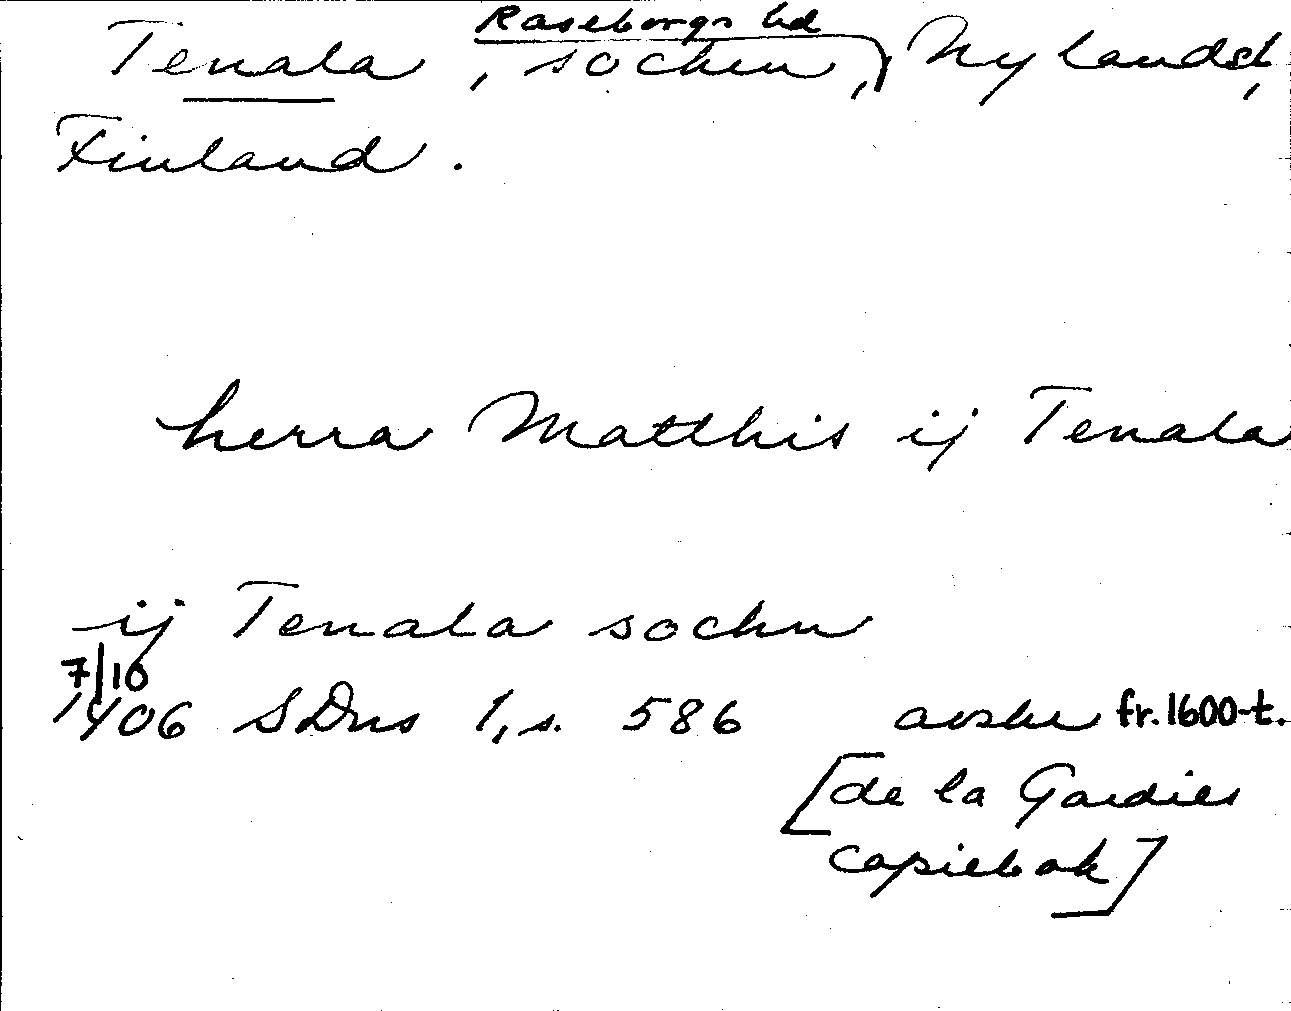 Raseborgs hd
Tenala, socken, Nylands l,
Finland.
herra Matthis ij Tenala
ij Tenala sochn
7/10
1406 SDns 1, s. 586 avskr fr. 1600-t.
[de la Gardies
copiebok]